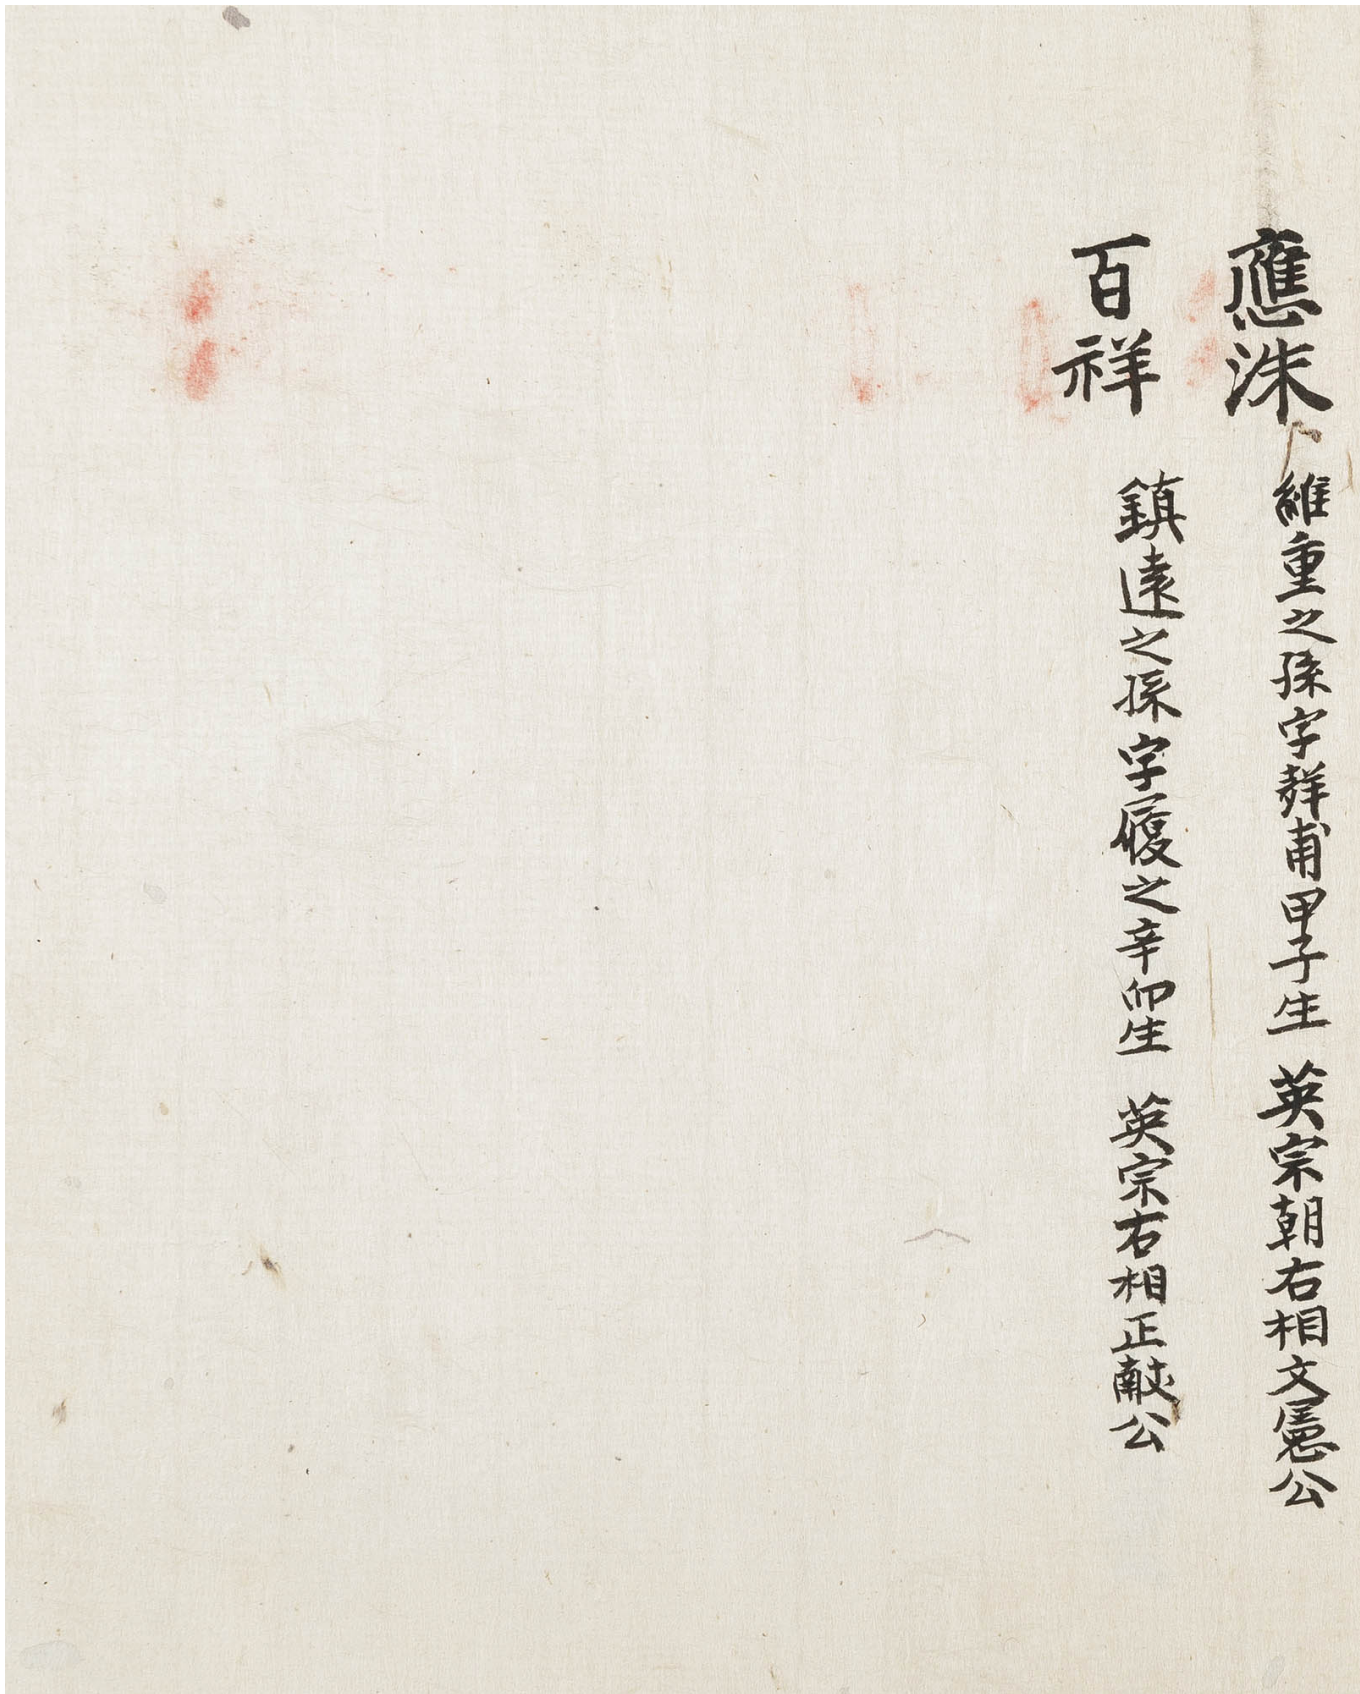 應洙 維重之孫字群甫甲子生 英宗朝右相文憲公
百祥 鎮遠之孫字履之辛卯生 英宗右相正献公